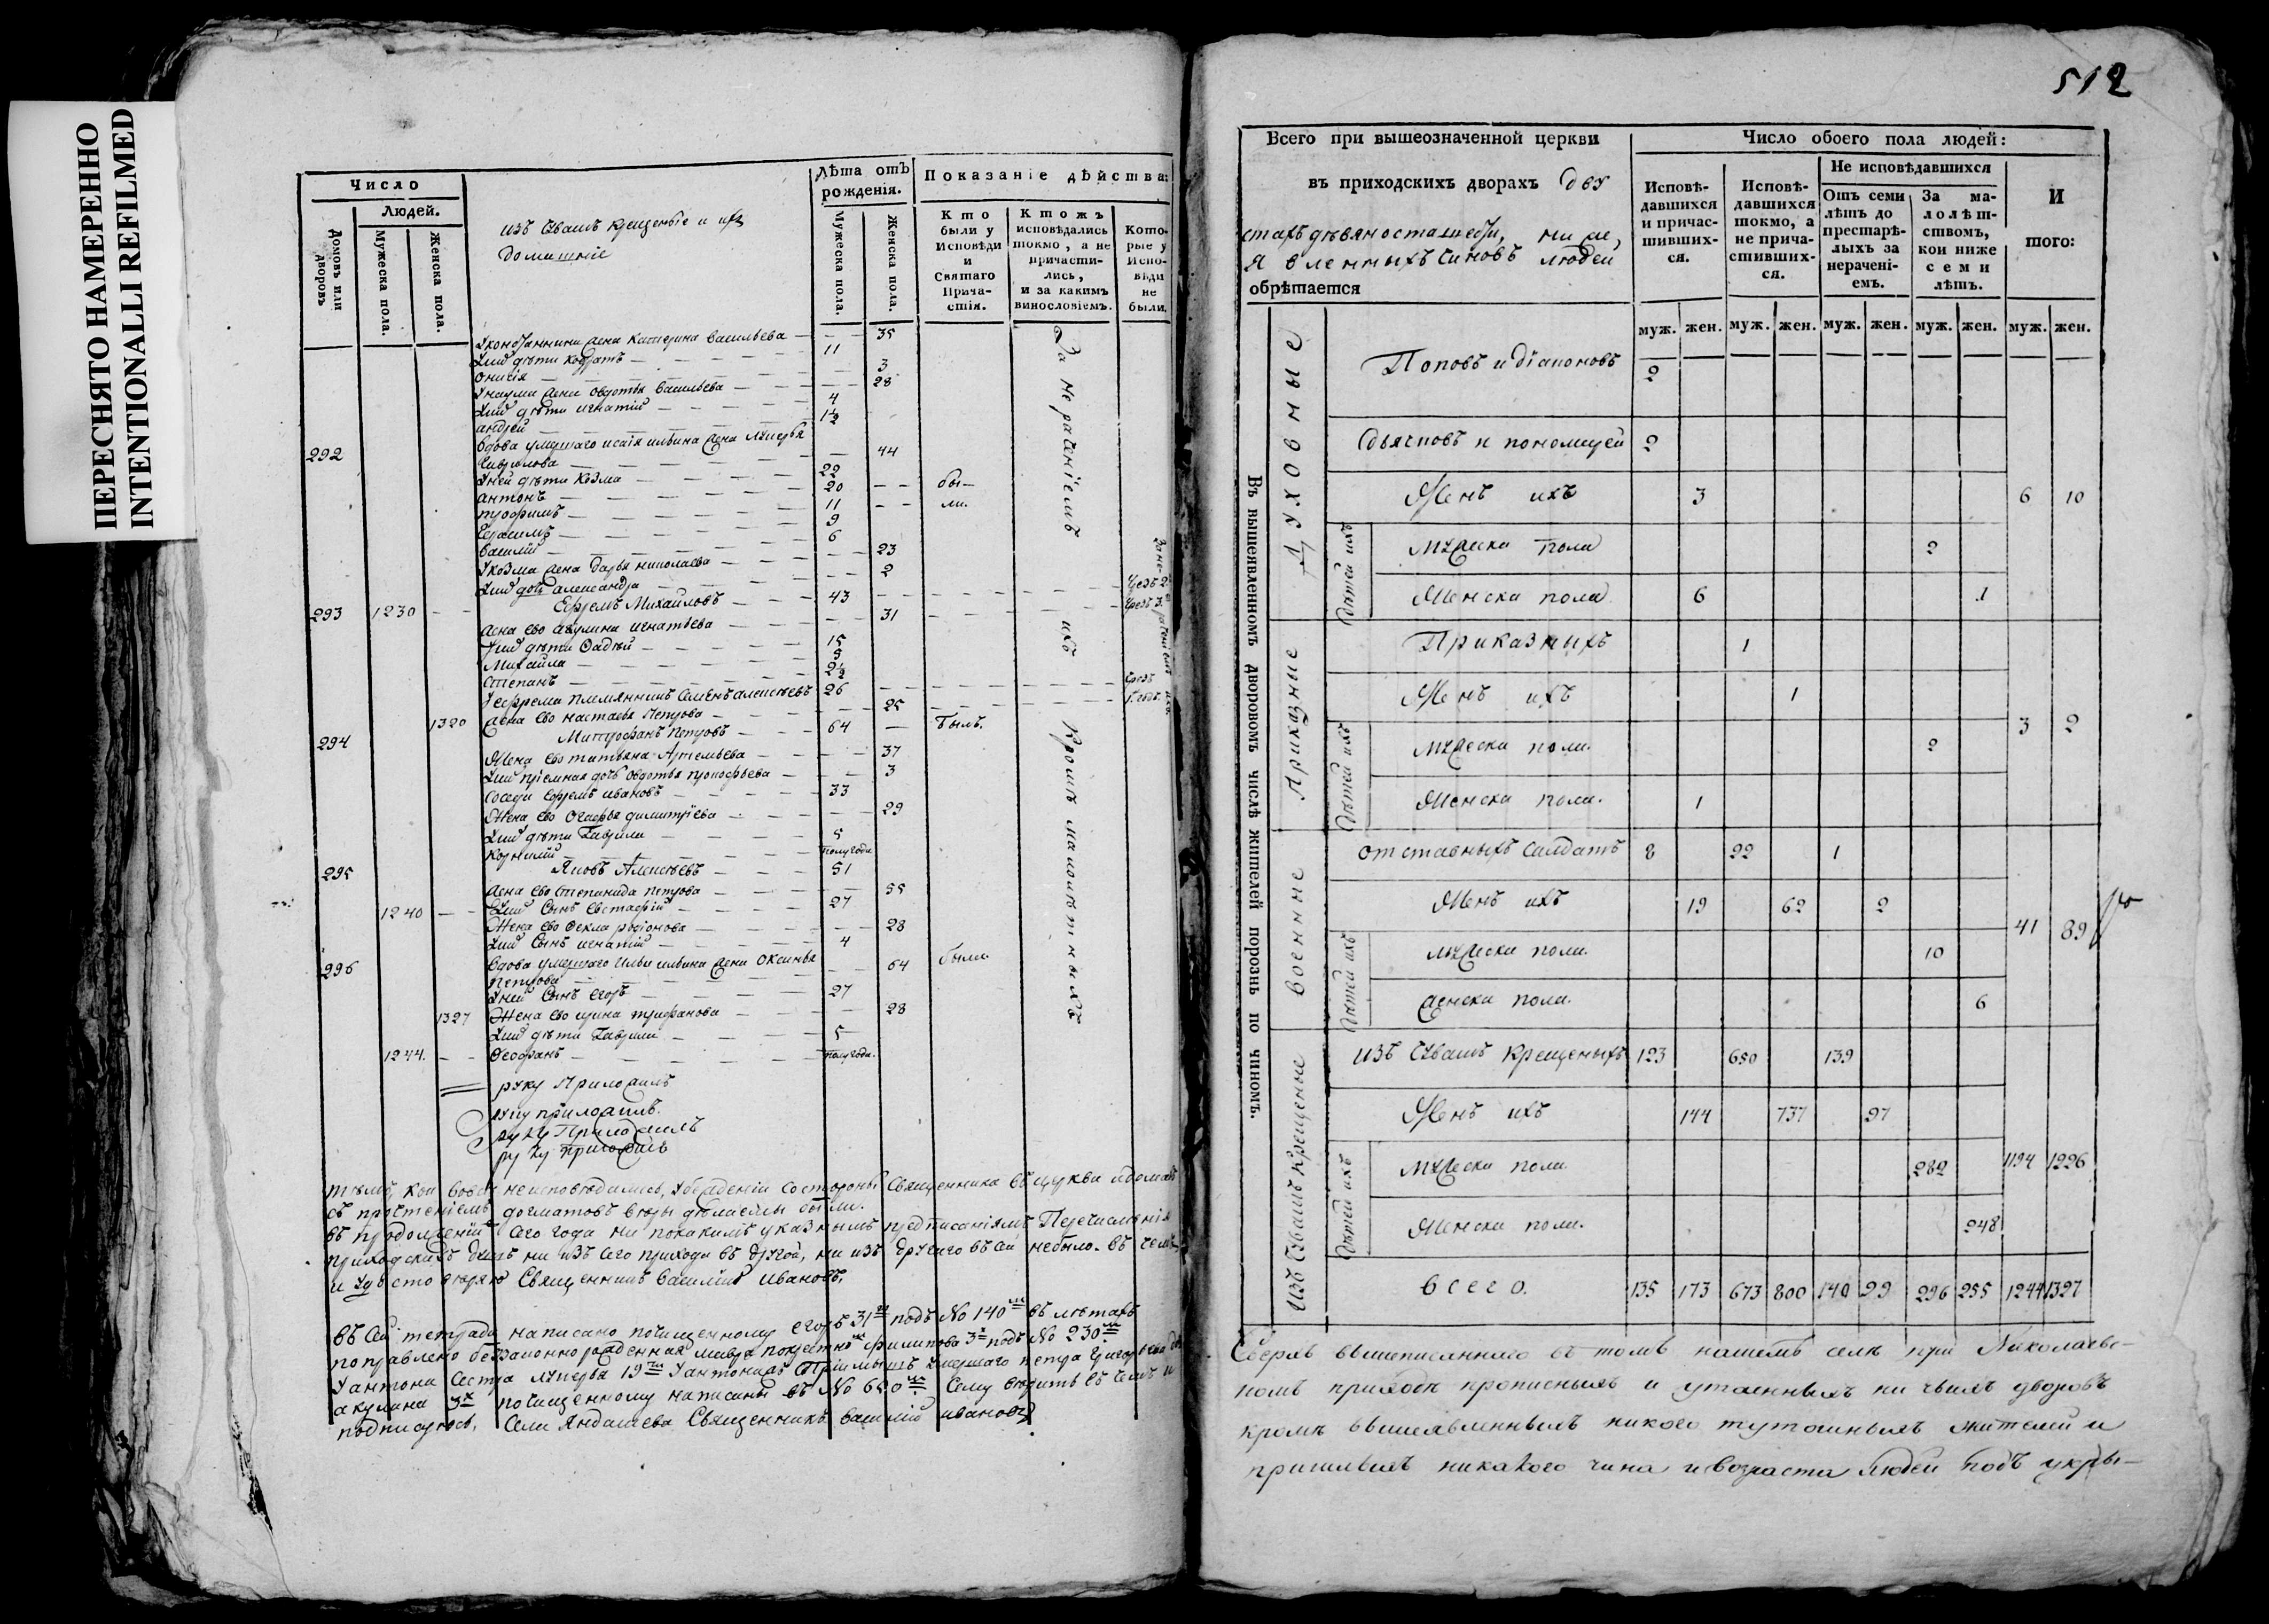 ПЕРЕСНЯТО НАМЕРЕННО
INTENTIONALLI REFILMED
Число
Людей.
Домовъ или дворовъ
Мужеска пола.
Женска пола.
изъ Чвашъ крещеные и ихъ
домашніе
Лѣта отъ рожденія.
Мужеска пола.
Женска пола.
Показаніе дѣйства:
Кто были у Исповѣди и Святаго Причастія.
Ктожъ исповѣдались токмо, а не причастились, и за какимъ винословіемъ.
Которые у Исповѣди не были.
жена Катерина Васильева — 35
дѣти 11
Онисія — 3
Унаума жена Овдотья Васильева — 28
дѣти Игнатій — 4
андрей — 1½
292 Вдова умершаго исаія ильина жена Лукерья
Гаврилова — 44
Уней дѣти Козма — 22 бы-
антонъ — 20 ли.
трофимъ — 11
Герасимъ — 9
Василій — 6
Укозма жена Дарья николаева — 23
дочь александра — 2
293 1230 Ефремъ Михайловъ — 43
жена ево акулина игнатьева — 31
дѣти Фадѣй — 15
Михайла — 9
Степанъ — 2½
Уефрема племянникъ Семенъ алексѣевъ 26
1320 жена ево настасья Петрова — 25
294 Митрофанъ Петровъ — 64 былъ.
Жена ево татьяна Артемьева — 37
пріемная дочь Овдотья прокофьева — 3
Соседи Ефремъ ивановъ — 33
Жена ево димитріева — 29
дѣти Гаврила — 5
Корнилій — полугода
295 Яковъ Алексѣевъ — 51
жена ево Степанида петрова — 55
1240 Сынъ Евстафій — 27
Жена ево Фекла родіонова — 28
Сынъ игнатій — 4
296 Вдова умершаго Ильи ильина жена Оксинья
петрова — 64 была
Уней Сынъ егоръ — 27
1327 Жена ево ирина трифанова — 28
дѣти Гаврила — 5
1244. Феофанъ — полугода.
За нераченіемъ ихъ кромѣ малолѣтныхъ
руку Приложилъ
руку приложилъ.
руку Приложилъ
руку приложилъ
тѣмъ, кои вовсе неисповѣдались, убежденіи состороны Священника въ церкви идомахъ
съ прочтеніемъ догматовъ веры дѣлаемы были.
въ продолженіи Сего года ни покакимъ указнымъ предписаніямъ Перечисленія
приходскихъ душъ ни изъ сего прихода въ другой, ни изъ другаго въ сей небыло. въ чемъ
и удостоверяю Священникъ Василій Ивановъ.
въ Сей тетради написано почищенному егоръ 31 подъ № 140 въ лѣтахъ
поправлено беззаконнорожденная мавра филипова 3 подъ № 230
Уантона Сестра лукерья 19 Уантонихъ умершаго петра Григорьева
акулина 3 почищенному написаны въ № 680 Сему верить въ чемъ и
подписуюсь, Села Яндашева Священникъ Василій ивановъ.
512
Всего при вышеозначенной церкви
въ приходскихъ дворахъ двѣ
стахъ девяносташести, ни же,
явленныхъ чиновъ людей
обрѣтается
Число обоего пола людей:
Исповѣдавшихся и причастившихся.
Исповѣдавшихся токмо, а не причастившихся.
Не исповѣдавшихся
Отъ семи лѣтъ до престарѣлыхъ за нераченіемъ.
За малолѣтствомъ, кои ниже семи лѣтъ.
И того:
муж. жен. муж. жен. муж. жен. муж. жен. муж. жен.
Въ вышеявленномъ дворовомъ числѣ жителей порознь по чиномъ:
Духовные
Поповъ и діаконовъ 2
дьячковъ и пономарей 2
Женъ ихъ 3 6 10
Дѣтей ихъ
Мужеска пола 2
Женска пола 6 1
Приказные
Приказныхъ 1
Женъ ихъ 1
Дѣтей ихъ
Мужеска пола. 2 3 2
Женска пола. 1
Военные
отставныхъ салдатъ 8 22 1
Женъ ихъ 19 62 2
Дѣтей ихъ
Мужеска пола. 10 41 89
женска пола. 6
Изъ Чвашъ крещенные
изъ Чвашъ крещеныхъ 123 650 139
Женъ ихъ 144 737 97
Дѣтей ихъ
Мужеска пола 282 1194 1226
Женска пола. 248
Всего. 135 173 673 800 140 99 296 255 1244 1327
Сверхъ вышеписаннаго въ томъ нашемъ селѣ при Николаевс-
комъ приходѣ прописныхъ и утаенныхъ ни чьихъ дворовъ
кромѣ вышеявленныхъ никого тутошныхъ жителей и
пришлыхъ никакого чина и возраста людей подъ укры-